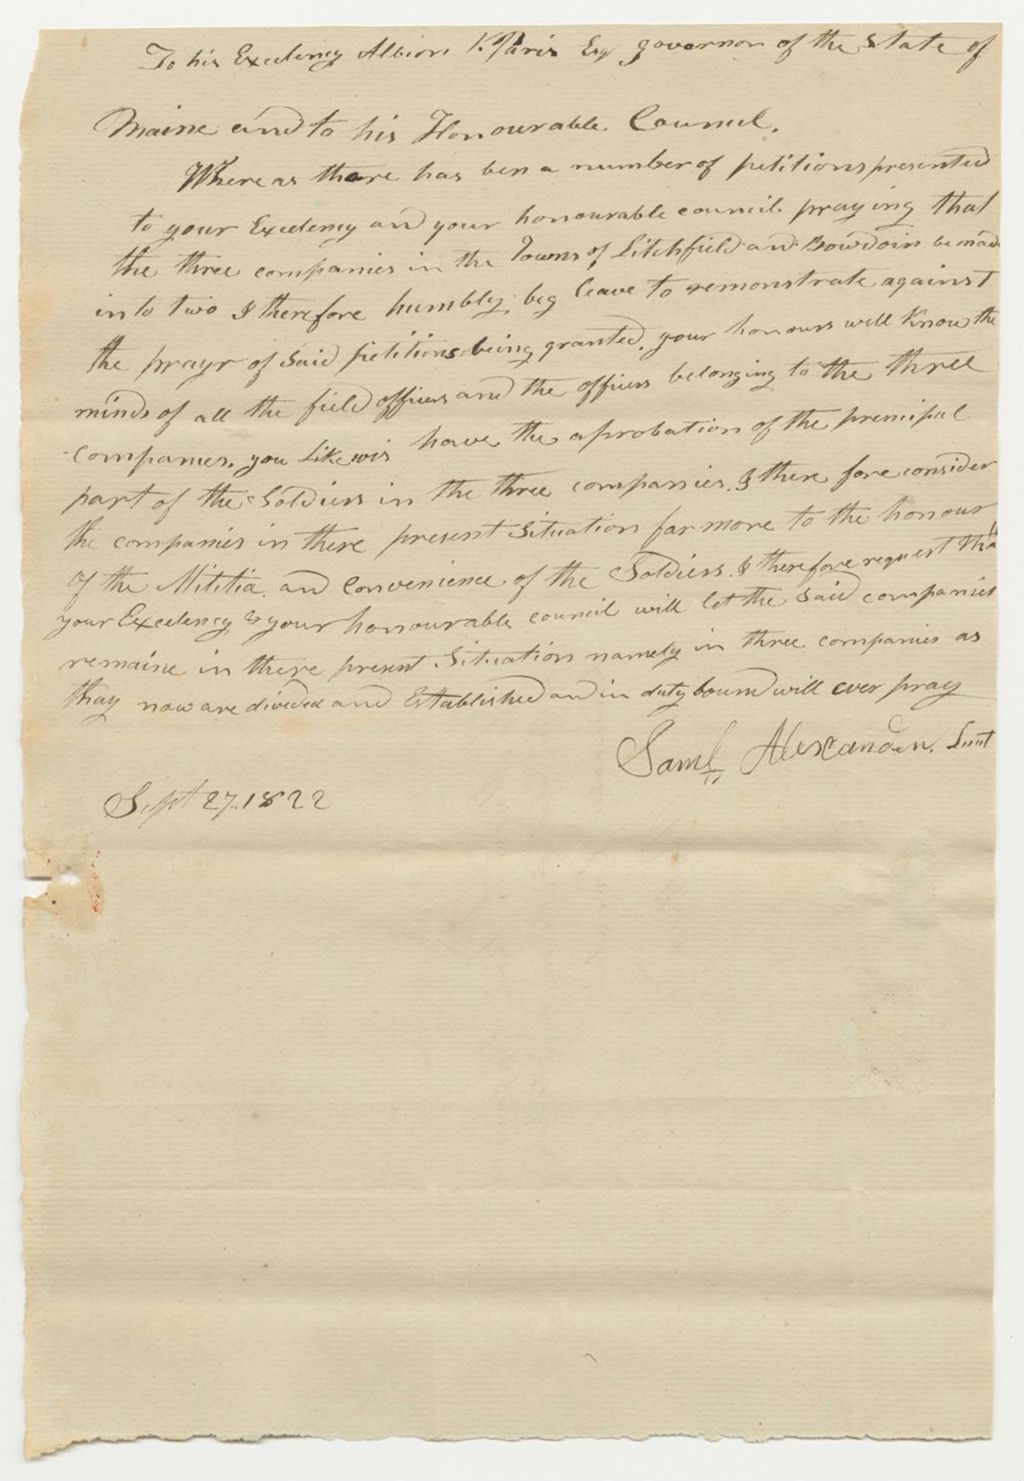 To his Excelency Albion K. Paris Esq governor of the State of
Maine and to his Honourable Council.
Where as there has ben a number of petitions presented
to your Excelency and your honourable council praying that
the three companies in the Towns of Litchfield and Bowdoin be made
in to two I therefore humbly beg leave to remonstrate against
the prayr of Said petitions being granted. your honours will Know the
minds of all the field officers and the officers belonging to the three
companies. you Like wis have the aprobation of the principal
part of the Soldiers in the three companies. I there fore consider
the companies in there present Situation far more to the honour
of the Militia and Convenience of the Soldiers. I therefore request that
your Excelency & your honourable council will let the Said companies
remaine in there present Situation namely in three companies as
thay now are divided and Established and in duty bound will ever pray
Saml Alexander. Lieut
Sept 27. 1822